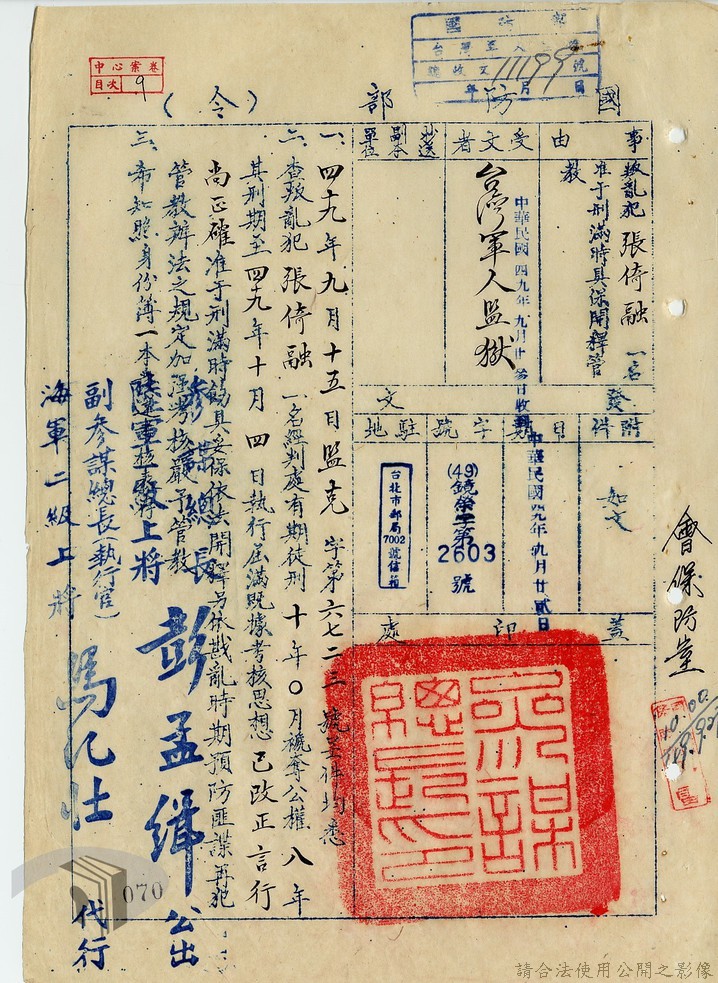 國防部（令）
國防部
台灣軍人監獄
總收文11199號
年 月 日
中心案卷
目次 9
事由
叛亂犯張倚融一名
准于刑滿時具保開釋管
教
受文者
台灣軍人監獄
中華民國四九年九月廿 日收到
副本
單位
附件
如文
發文
日期
中華民國四九年九月廿貳日
字號
(49)鏡榮字第
2603
號
駐地
台北市郵局
7002
號信箱
蓋印處
參謀總長印
一、四九年九月十五日監克字第六七二三號 件均悉
二、查叛亂犯張倚融一名經判處有期徒刑十年〇月褫奪公權八年
其刑期至四九年十月四日執行屆滿既據考核思想已改正言行
尚正確准于刑滿時飭具妥保依法開釋另依戡亂時期預防匪諜再犯
管教辦法之規定加強考核嚴予管教
三、希知照身份簿一本
參謀總長
陸軍一級上將
彭孟緝公出
副參謀總長（執行官）
海軍二級上將
馬紀壯代行
會保防室
070
請合法使用公開之影像